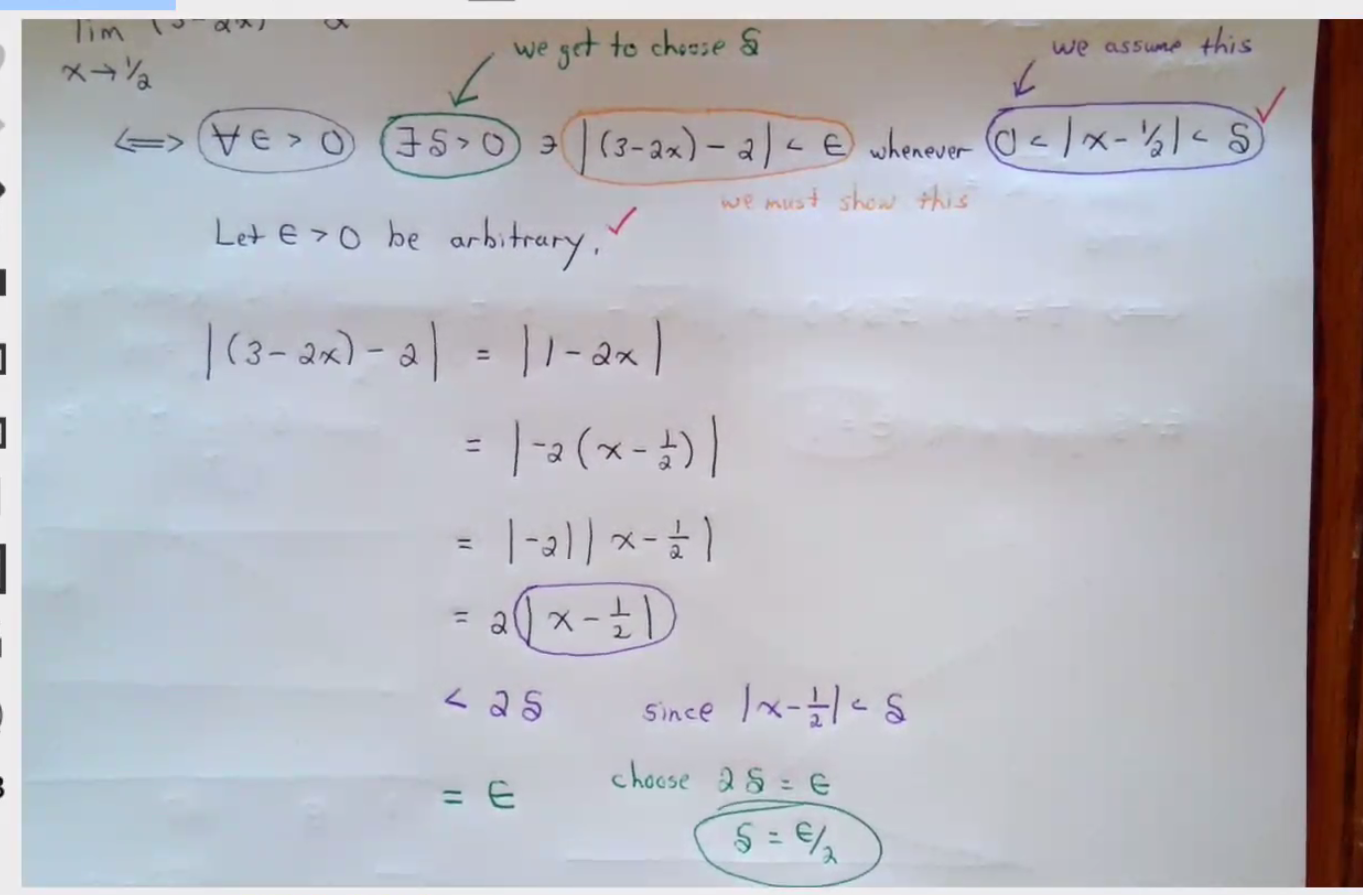 lim (3-2x) 2
x→½
we get to choose δ
we assume this
⟺ ∀ε>0 ∃δ>0 ∋ |(3-2x)-2| < ε whenever 0 < |x-½| < δ ✓
we must show this
Let ε>0 be arbitrary. ✓
|(3-2x)-2| = |1-2x|
= |-2(x-½)|
= |-2||x-½|
= 2|x-½|
< 2δ since |x-½| < δ
= ε choose 2δ = ε
δ = ε/2